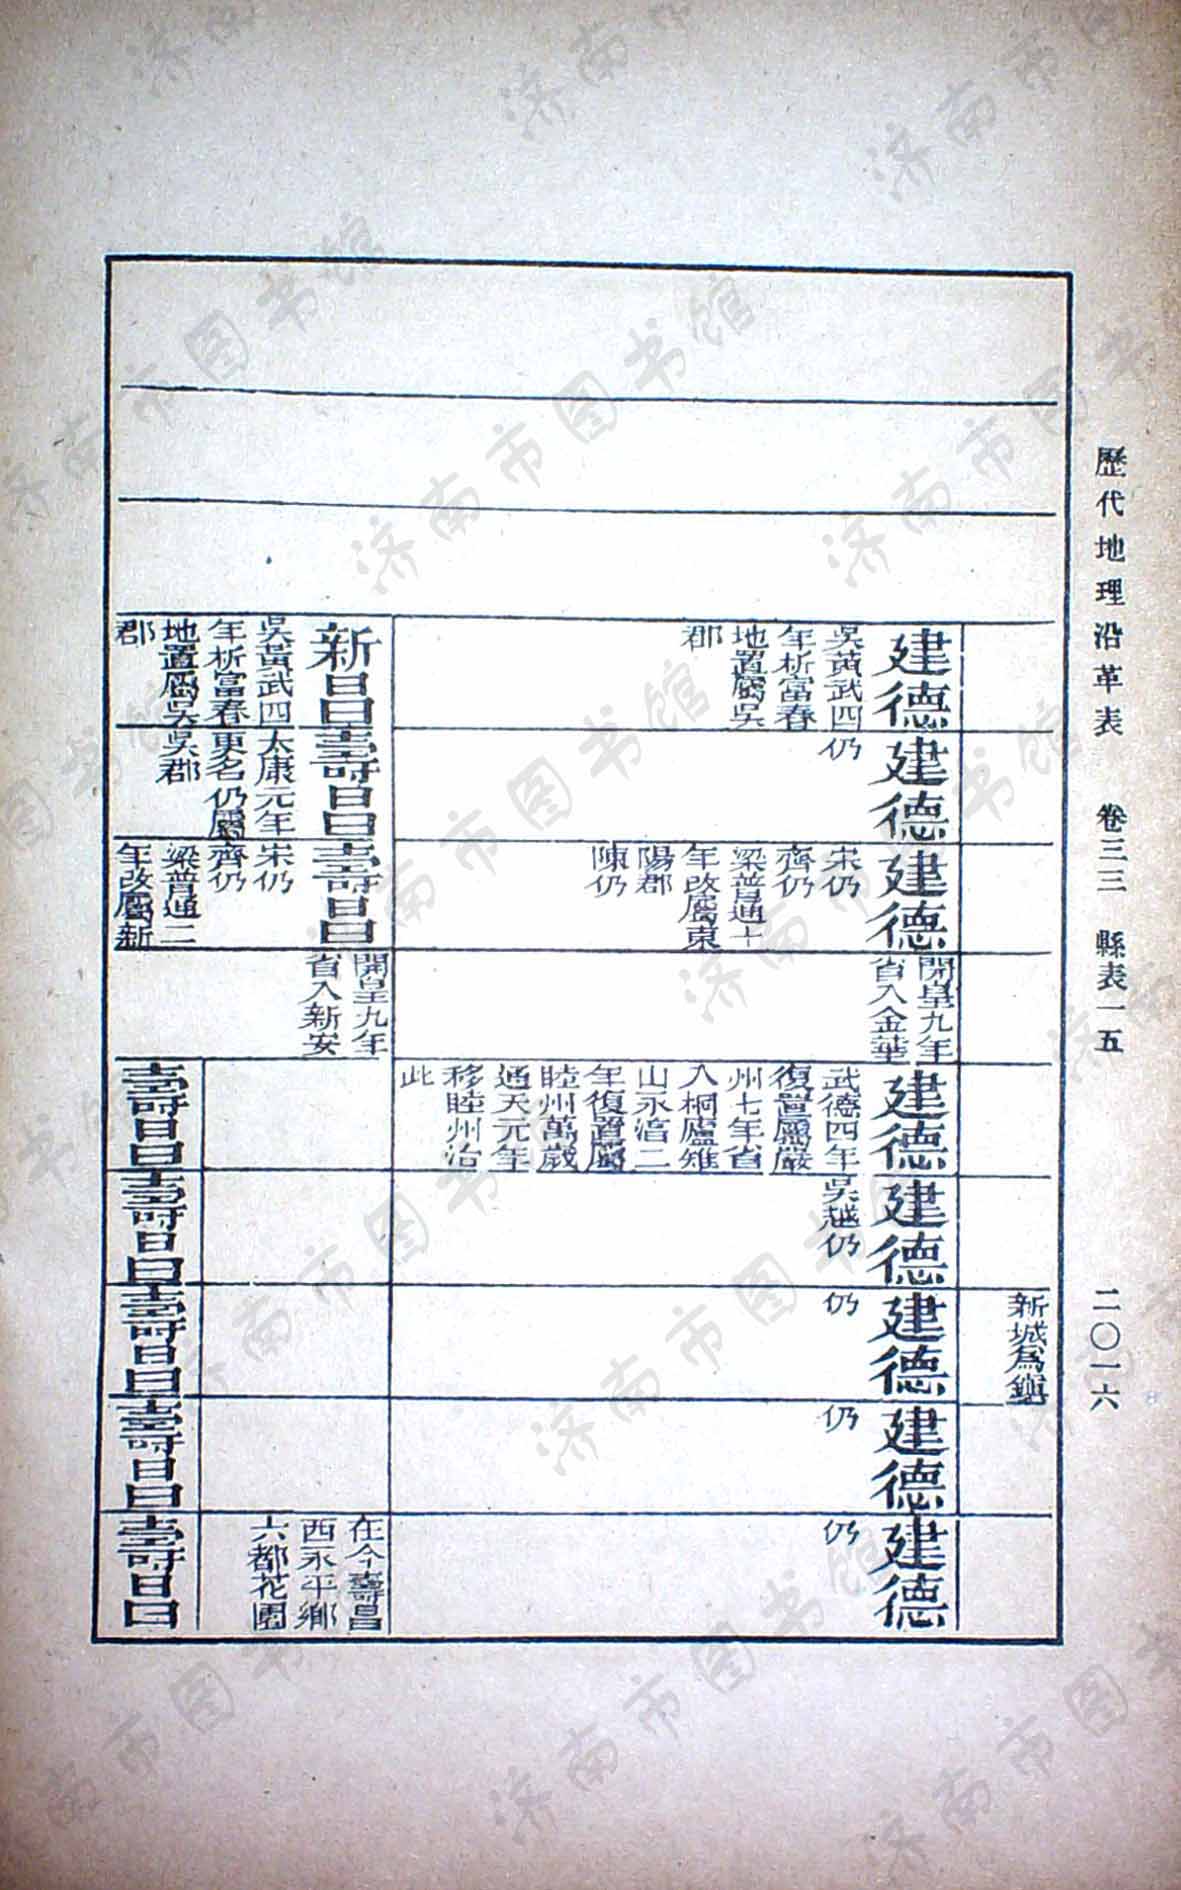 歷代地理沿革表 卷三三 縣表一五 二〇一六
新城爲鎭
建德
吳黃武四
年析富春
地置屬吳
郡
建德
仍
建德
宋仍
齊仍
梁普通七
年改屬東
陽郡
陳仍
開皇九年
省入金華
建德
武德四年
復置屬嚴
州七年省
入桐廬雉
山永淳二
年復置屬
睦州萬歲
通天元年
移睦州治
此
建德
吳越仍
建德
仍
建德
仍
建德
仍
新昌
吳黃武四
年析富春
地置屬吳
郡
壽昌
太康元年
更名仍屬
吳郡
壽昌
宋仍
齊仍
梁普通二
年改屬新
開皇九年
省入新安
在今壽昌
西永平鄉
六都花園
壽昌
壽昌
壽昌
壽昌
壽昌
济南市图书馆